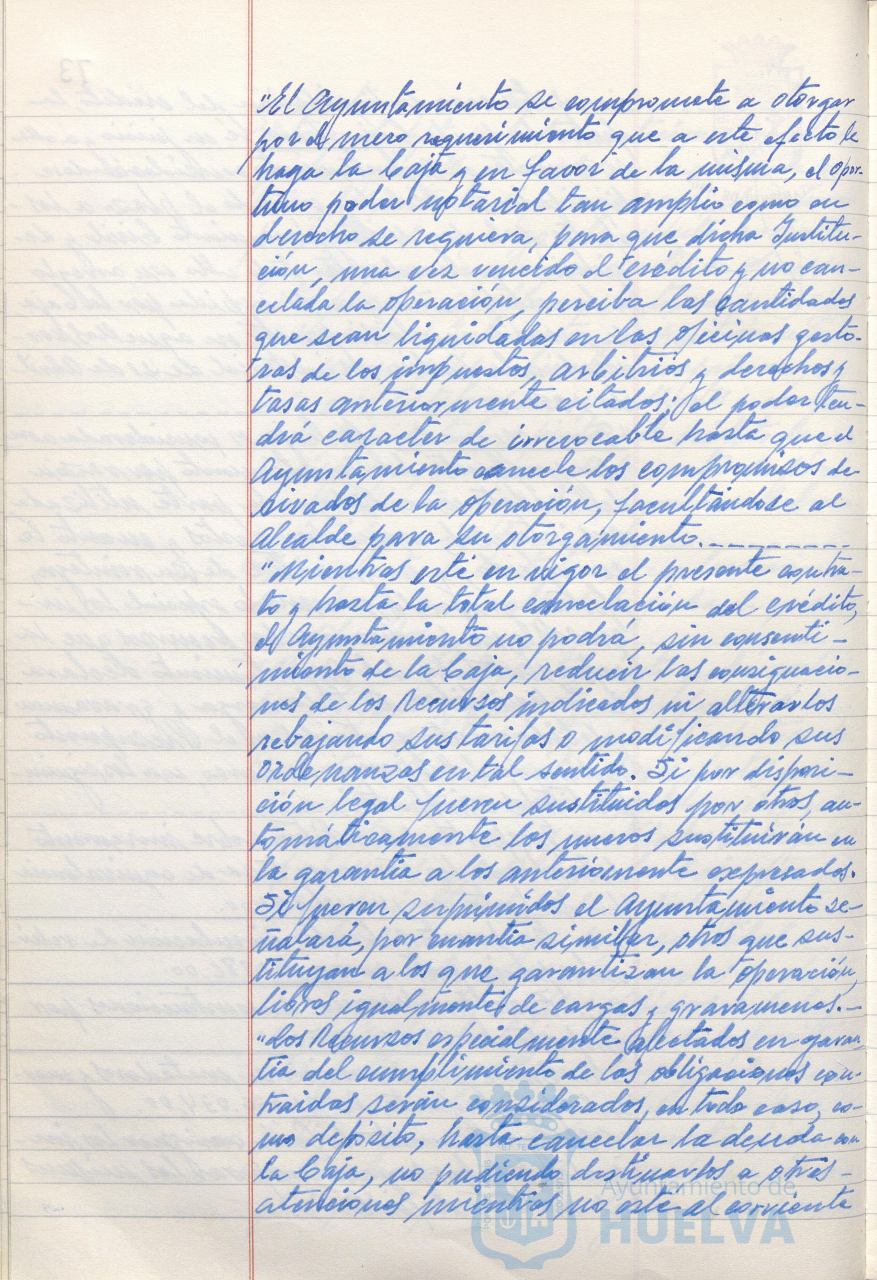 "El Ayuntamiento se compromete a otorgar
por el mero requerimiento que a este efecto le
haga la Caja y en favor de la misma, el opor-
tuno poder notarial tan amplio como en
derecho se requiera, para que dicha Institu-
ción, una vez vencido el crédito y no can-
celada la operación, perciba las cantidades
que sean liquidadas en las oficinas gesto-
ras de los impuestos, arbitrios y derechos y
tasas anteriormente citados; el poder ten-
drá caracter de irrevocable hasta que el
Ayuntamiento cancele los compromisos de
rivados de la operación, facultándose al
Alcalde para su otorgamiento.
"Mientras esté en vigor el presente contra-
to y hasta la total cancelación del crédito,
el Ayuntamiento no podrá, sin consenti-
miento de la Caja, reducir las consignacio-
nes de los Recursos indicados ni alterarlos
rebajando sus tarifas o modificando sus
Ordenanzas en tal sentido. Si por disposi-
ción legal fueren sustituidos por otros, au-
tomáticamente los nuevos sustituirán en
la garantía a los anteriormente expresados.
Si fueran suprimidos el Ayuntamiento se-
ñalará, por cuantía similar, otros que sus-
tituyan a los que garantizan la operación,
libros igualmente de cargas y gravamenes.-
"Los Recursos especialmente afectados en garan-
tía del cumplimiento de las obligaciones con-
traidas serán considerados, en todo caso, co-
mo depósito, hasta cancelar la deuda con
la Caja, no pudiendo destinarlos a otras
atenciones mientras no esté al corriente
73
Ayuntamiento de
HUELVA